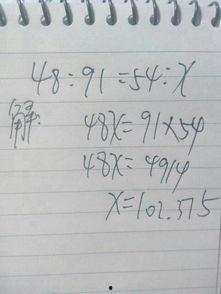 48:91=54:x
解: 48x=91×54
48x=4914
x=102.375